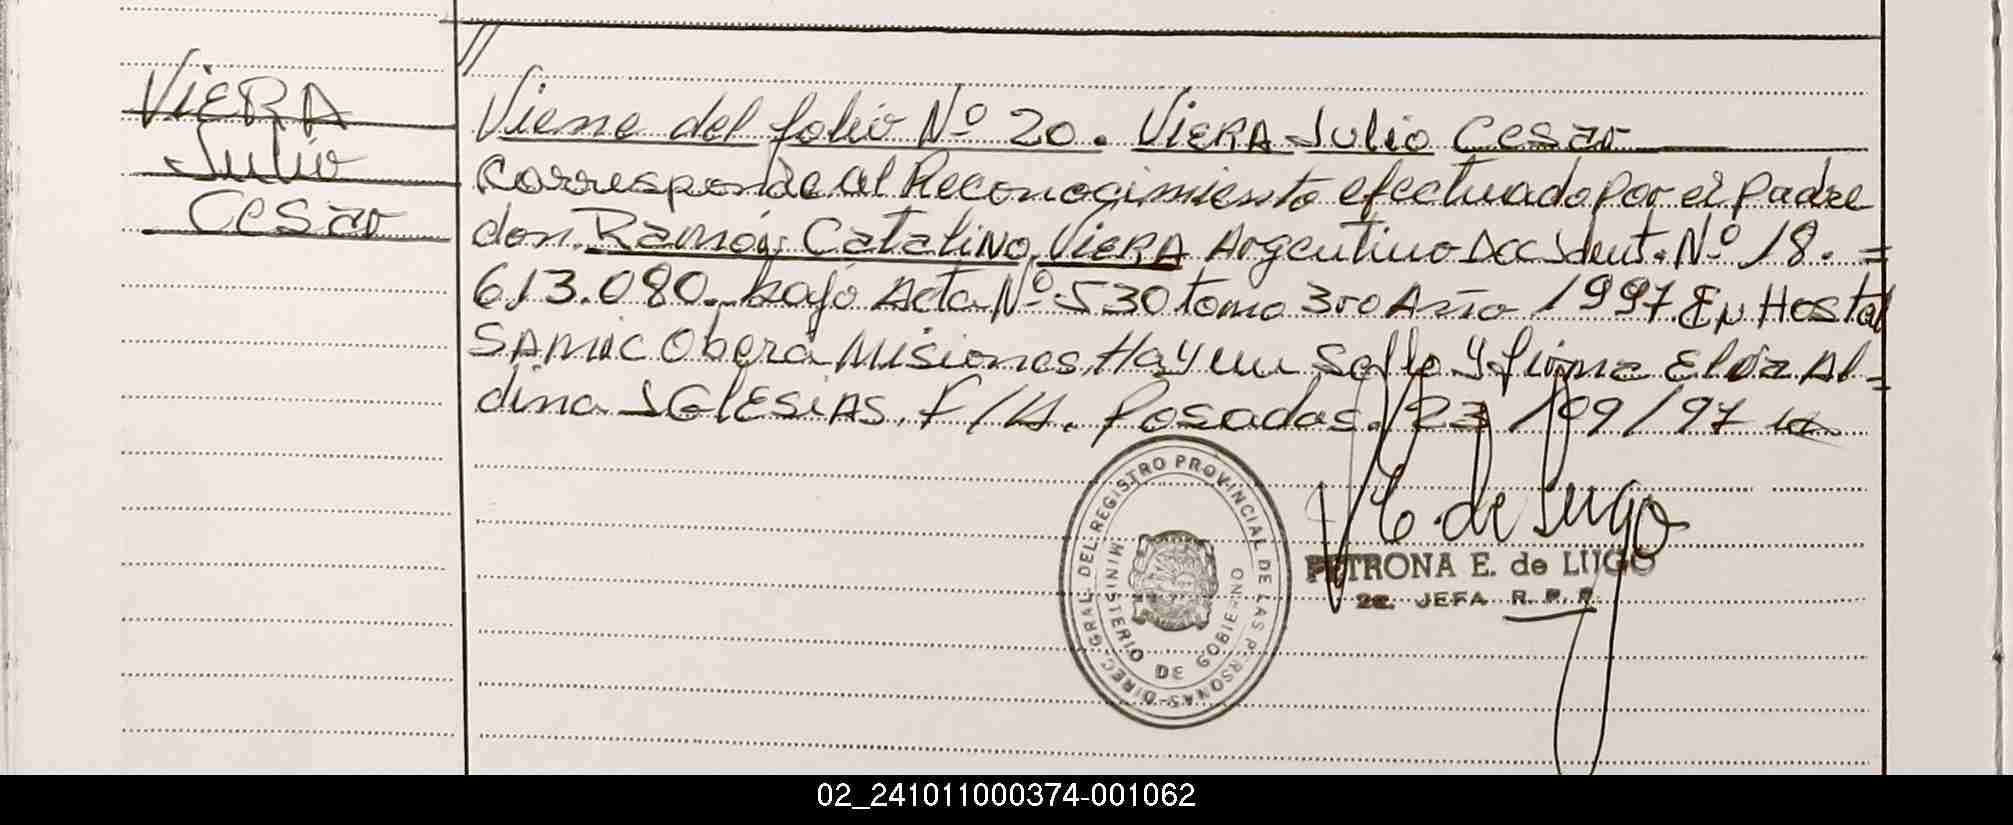 VIERA
Julio
Cesar
//
Viene del folio Nº 20. VIERA Julio Cesar
Corresponde al Reconocimiento efectuado por el padre
don Ramón Catalino VIERA Argentino Doc Ident. Nº 18.=
613.080. bajo Acta Nº 530 tomo 3ro Año 1997. En Hostal
SAMIC Oberá Misiones, Hay un Sello y firma Elva Al=
dina IGLESIAS. F/H. Posadas. 23/09/97
DIREC. GRAL. DEL REGISTRO PROVINCIAL DE LAS PERSONAS
MINISTERIO DE GOBIERNO
E. de Lugo
PETRONA E. de LUGO
2a. JEFA R. P. P.
02_241011000374-001062